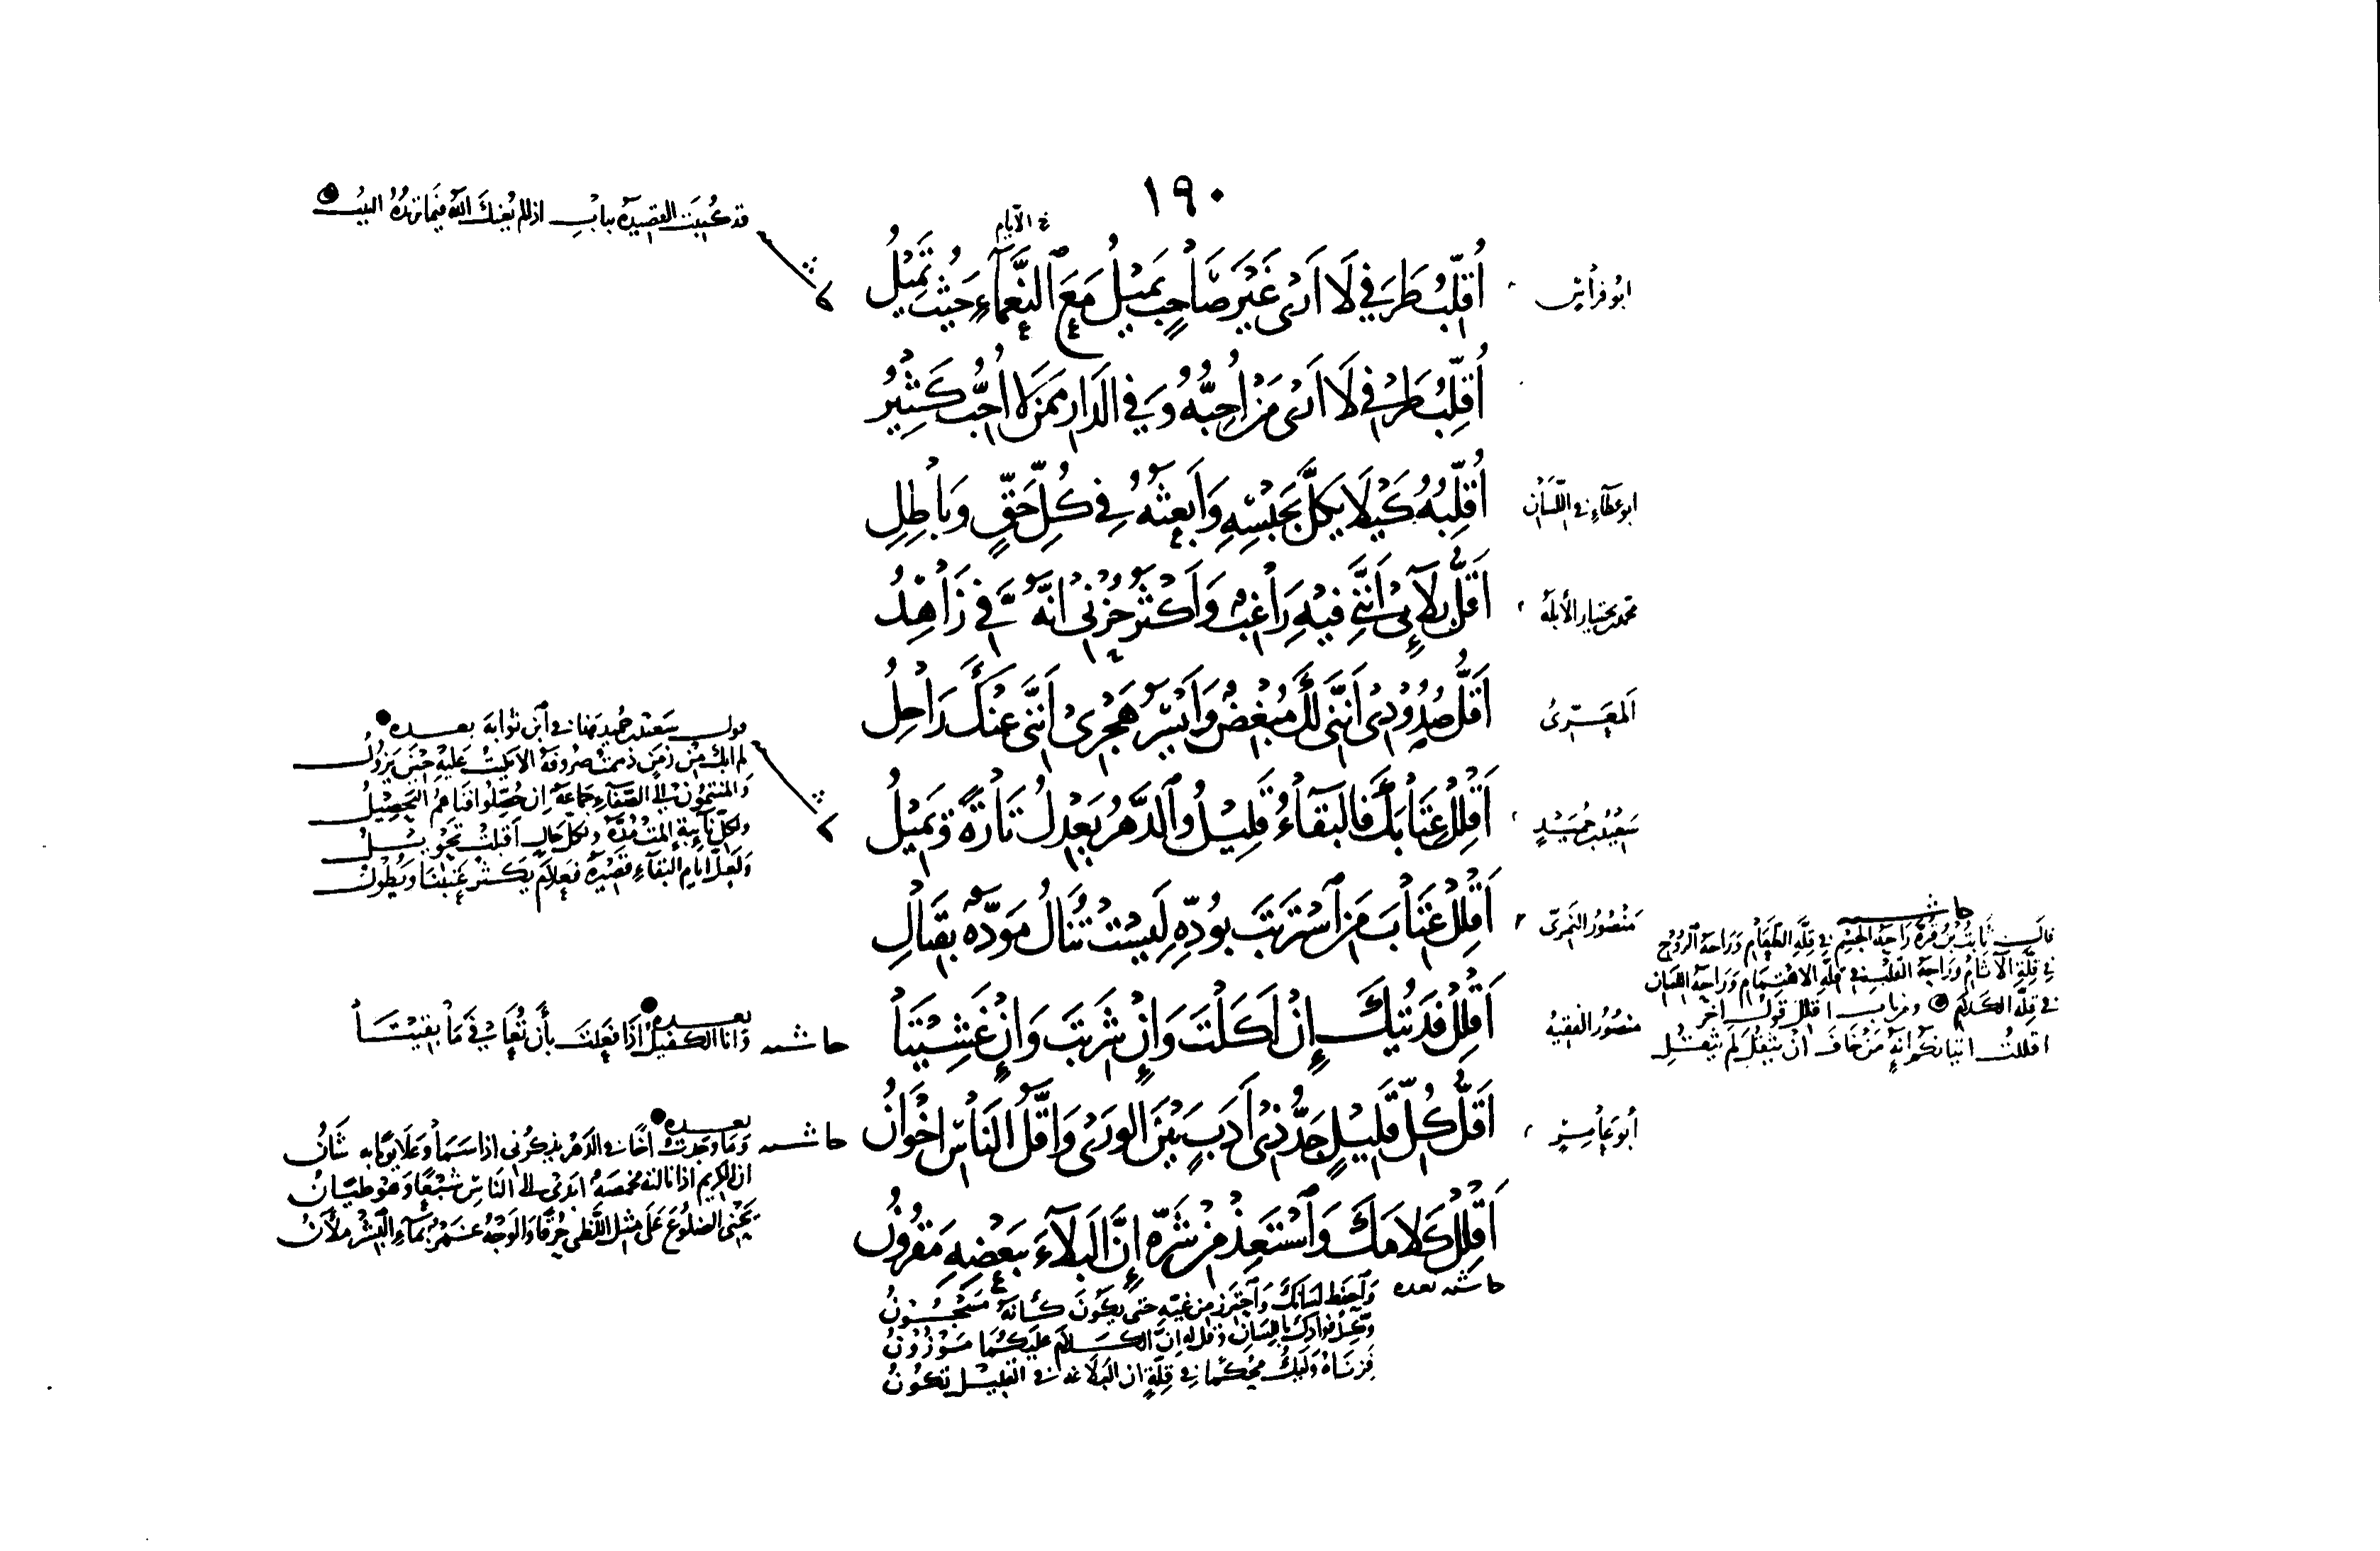 ١٩٠
قد كتبت القصيدة بباب اذا لم يعنك الله فيما تريده البيت
في الأيام
ابو فراس
أُقَلِّبُ طَرفي لَا اَرى غَيْرَ صَاحِبٍ يَميْلُ مَعَ النَّعْمَاءِ حَيْثُ تَمِيْلُ
أُقَلِّبُ طَرْفي لَا اَرى مَنْ اُحِبُّهُ وَفي الدَارِ مِمَّنْ لَا اُحِبُّ كَثِيْرُ
ابو عطاء في اللسان
أُقَلِّبُهُ كَيْلَا يَكِلَّ بِحَبْسِهِ وَاَبعَثهُ في كُلِّ حَقٍّ وَبَاطِلِ
محمد بن بختيار الأبله
اَقَلُّ بَلَآئِي اَنَّنِي فيْهِ رَاغِبٌ وَاَكْثَرُ حُزْنِي انَّهُ فيَّ زَاهِدُ
المعري
اَقَلُّ صُدُوْدِي اَنَّنِي لَكَ مُبْغِضٌ وَاَيْسَرُ هَجْرِي اَنَّنِي عَنْكَ رَاحِلُ
سعيد بن حميد
اَقْلِلْ عِتَابَكَ فَالبَقَاءُ قَلِيْلُ وَالدَّهْرُ يَعْدِلُ تَارَةً وَيَمِيْلُ
قول سعيد بن حميد هذا في ابن ثوابة بعده
لم ابك من زمن ذممت صروفه الا بكيت عليه حين يزول
والمنتمون الى الصفاء جماعة ان حصلوا افناهم التحصيل
ولكل نائبة المت مدة ولكل حال اقبلت تحويل
ولعل ايام البقاء قصيرة فعلام يكثر عتبنا ويطول
منصور النمري
اَقْلِلْ عِتَابَ مَنِ اسْتَرَبْتَ بوُدِّهِ لَيسْتْ تُنَالُ مَوَدّةٌ بقِتَالِ
حاشية
قال ثابت بن قرة راحة الجسم في قلة الطعام وراحة الروح
في قلة الآثام وراحة القلب في قلة الاهتمام وراحة اللسان
في قلة الكلام ومن باب اقلل قول اخر
اقللت اتيانكم انه من خاف ان يثقل لم يثقل
منصور الفقيه
اَقْلِلْ فَدَتُيكَ إِنْ اَكَلْتَ وَإِنْ شَرِبْتَ وَإِنْ غَشِيْتَا
حاشية بعده
وانا الكفيل اذا فعلت بأن تعافى ما بقيتا
أبو عامر
اَقَلُّ كُلِّ قَلِيْلٍ جَدُّ ذِي اَدَبٍ بَيْنَ الوَرَى وَاَقَلُّ النَاسِ اخْوَانُ
حاشية بعده
وما وجدت اخا في الدهر يذكرني اذا سما وعلا يوما به شان
ان الكريم اذا نالته مخمصة ابدى الى الناس شبعا وهو طيان
يحنى الضلوع على مثل اللظى حرقا والوجه غمر بماء البشر ملآن
اَقْلِلْ كَلَامَكَ وَاسْتَعِذْ مِنْ شَرِّهِ إِنَّ البَلَاءَ بِبَعْضِهِ مَقْرُوْنُ
حاشية بعده واحفظ لسانك واحترز من غيه حتى يكون كأنه مسجون
وكل فؤادك باللسان وقل له ان الكلام عليكما موزون
فزناه وليك محكما في قلة ان البلاغة في القليل تكون